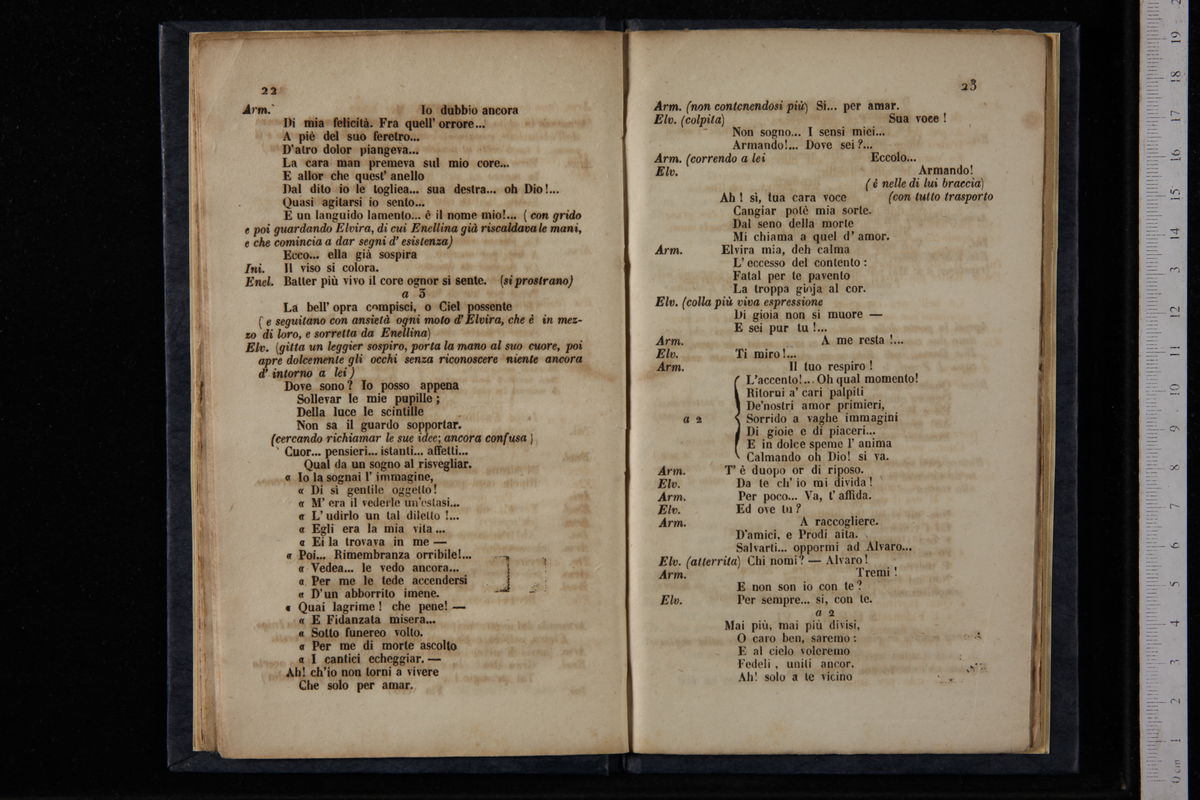 22
Arm. Io dubbio ancora
Di mia felicità. Fra quell' orrore...
A piè del suo feretro...
D'atro dolor piangeva...
La cara man premeva sul mio core...
E allor che quest' anello
Dal dito io le togliea... sua destra... oh Dio!...
Quasi agitarsi io sento...
E un languido lamento... è il nome mio!... (con grido
e poi guardando Elvira, di cui Enellina già riscaldava le mani,
e che comincia a dar segni d' esistenza)
Ecco... ella già sospira
Ini. Il viso si colora.
Enel. Batter più vivo il core ognor si sente. (si prostrano)
a 3
La bell' opra compisci, o Ciel possente
(e seguitano con ansietà ogni moto d' Elvira, che è in mez-
zo di loro, e sorretta da Enellina)
Elv. (gitta un leggier sospiro, porta la mano al suo cuore, poi
apre dolcemente gli occhi senza riconoscere niente ancora
d' intorno a lei)
Dove sono? Io posso appena
Sollevar le mie pupille;
Della luce le scintille
Non sa il guardo sopportar.
(cercando richiamar le sue idee; ancora confusa)
Cuor... pensieri... istanti... affetti...
Qual da un sogno al risvegliar.
« Io la sognai l' immagine,
« Di sì gentile oggetto!
« M' era il vederle un'estasi...
« L' udirlo un tal diletto!...
« Egli era la mia vita...
« Ei la trovava in me —
« Poi... Rimembranza orribile!...
« Vedea... le vedo ancora...
« Per me le tede accendersi
« D'un abborrito imene.
« Quai lagrime! che pene! —
« E Fidanzata misera...
« Sotto funereo volto.
« Per me di morte ascolto
« I cantici echeggiar. —
Ah! ch'io non torni a vivere
Che solo per amar.
23
Arm. (non contenendosi più) Si... per amar.
Elv. (colpita) Sua voce!
Non sogno... I sensi miei...
Armando!... Dove sei?...
Arm. (correndo a lei Eccolo...
Elv. Armando!
(è nelle di lui braccia)
Ah! sì, tua cara voce (con tutto trasporto
Cangiar potè mia sorte.
Dal seno della morte
Mi chiama a quel d' amor.
Arm. Elvira mia, deh calma
L' eccesso del contento:
Fatal per te pavento
La troppa gioja al cor.
Elv. (colla più viva espressione
Di gioia non si muore —
E sei pur tu!...
Arm. A me resta!...
Elv. Ti miro!...
Arm. Il tuo respiro!
L'accento!... Oh qual momento!
Ritorni a' cari palpiti
De'nostri amor primieri,
a 2 Sorrido a vaghe immagini
Di gioie e di piaceri...
E in dolce speme l' anima
Calmando oh Dio! si va.
Arm. T' è duopo or di riposo.
Elv. Da te ch' io mi divida!
Arm. Per poco... Va, t' affida.
Elv. Ed ove tu?
Arm. A raccogliere.
D'amici, e Prodi aita.
Salvarti... oppormi ad Alvaro...
Elv. (atterrita) Chi nomi? — Alvaro!
Arm. Tremi!
E non son io con te?
Elv. Per sempre... si, con te.
a 2
Mai più, mai più divisi,
O caro ben, saremo:
E al cielo voleremo
Fedeli, uniti ancor.
Ah! solo a te vicino
0 cm 1 2 3 4 5 6 7 8 9 10 11 12 13 14 15 16 17 18 19 2